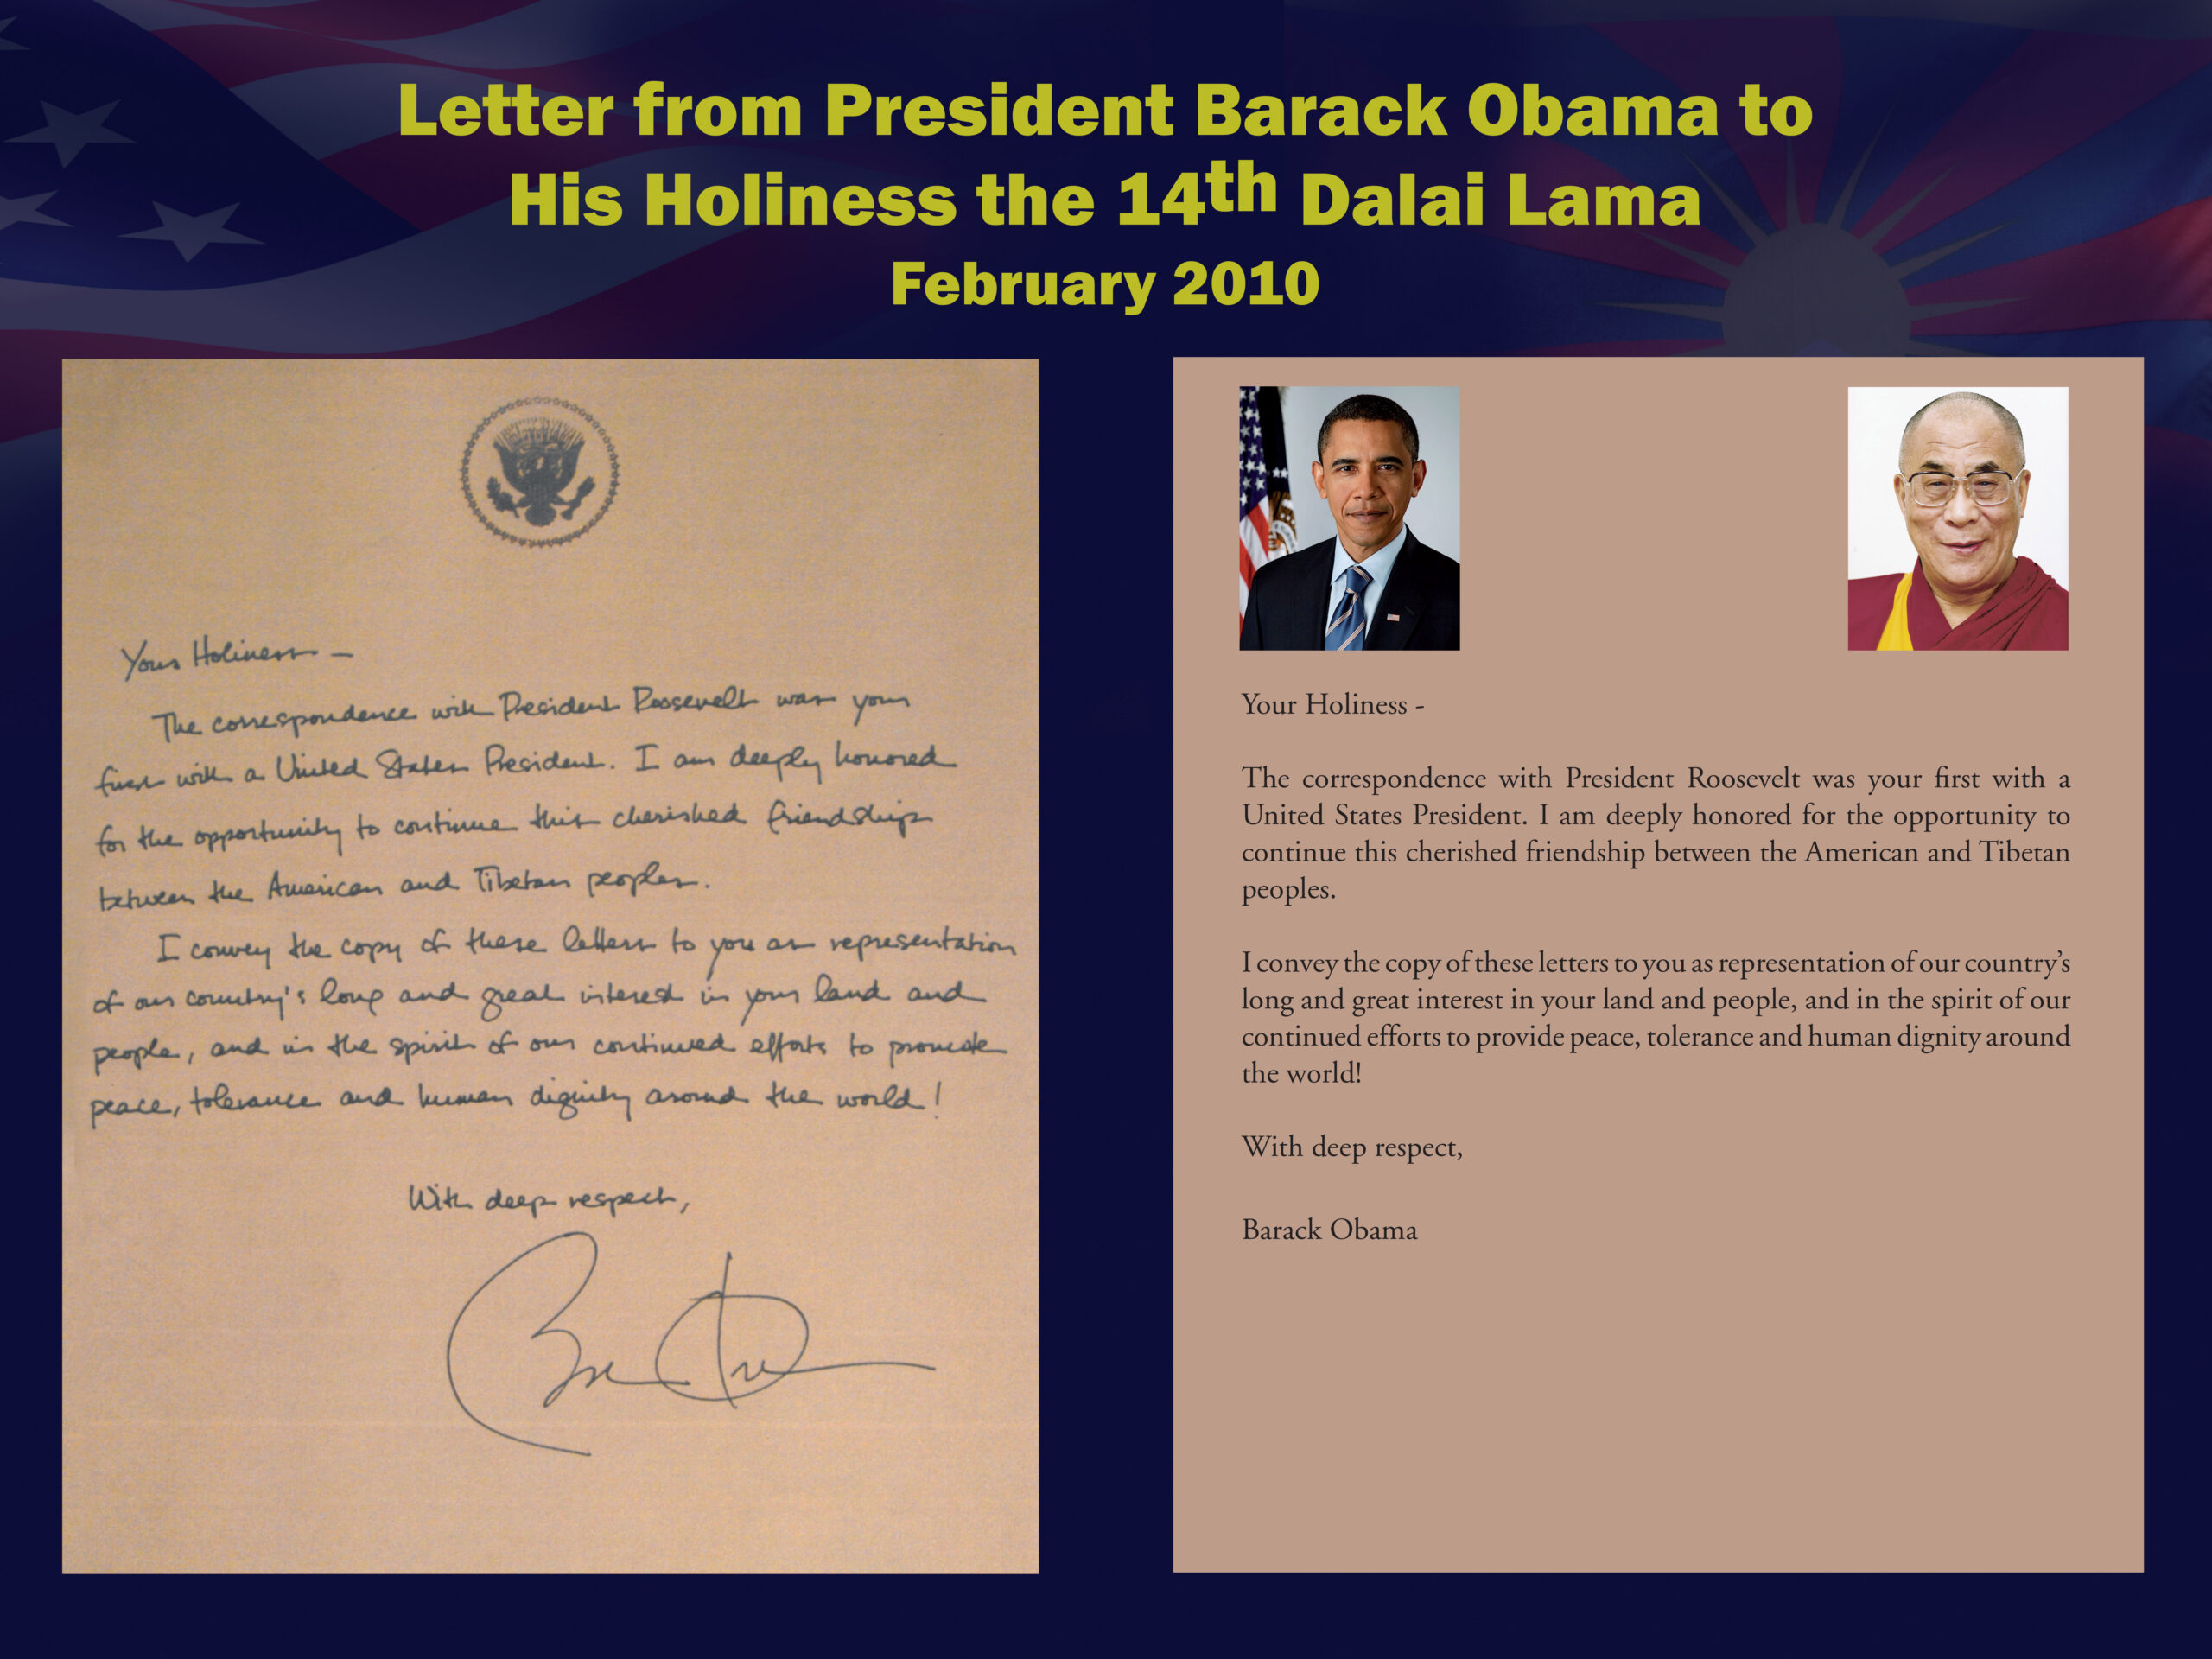 Letter from President Barack Obama to
His Holiness the 14th Dalai Lama
February 2010
Your Holiness —
The correspondence with President Roosevelt was your
first with a United States President. I am deeply honored
for the opportunity to continue this cherished friendship
between the American and Tibetan peoples.
I convey the copy of these letters to you as representation
of our country's long and great interest in your land and
people, and in the spirit of our continued efforts to promote
peace, tolerance and human dignity around the world!
With deep respect,
Your Holiness -
The correspondence with President Roosevelt was your first with a
United States President. I am deeply honored for the opportunity to
continue this cherished friendship between the American and Tibetan
peoples.
I convey the copy of these letters to you as representation of our country’s
long and great interest in your land and people, and in the spirit of our
continued efforts to provide peace, tolerance and human dignity around
the world!
With deep respect,
Barack Obama